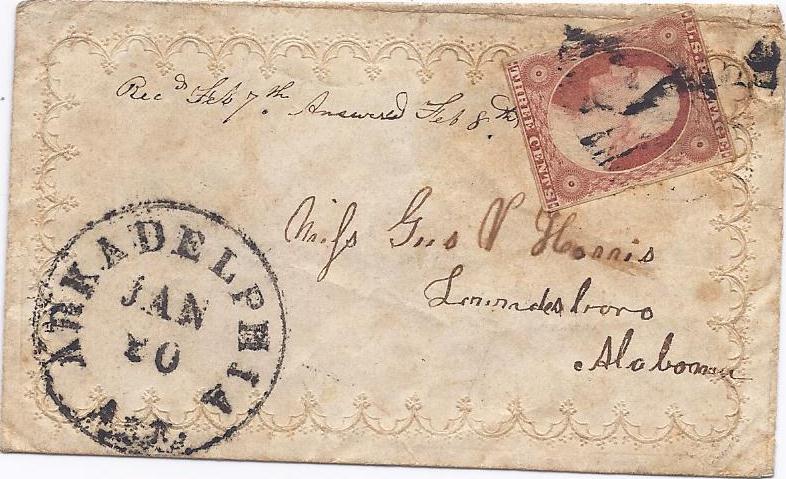 Recd Feb 7th. Answered Feb 8th.
U.S. POSTAGE.
THREE CENTS.
Miss Geo V Harris
Lowndesboro
Alabama
ARKADELPHIA
JAN
20